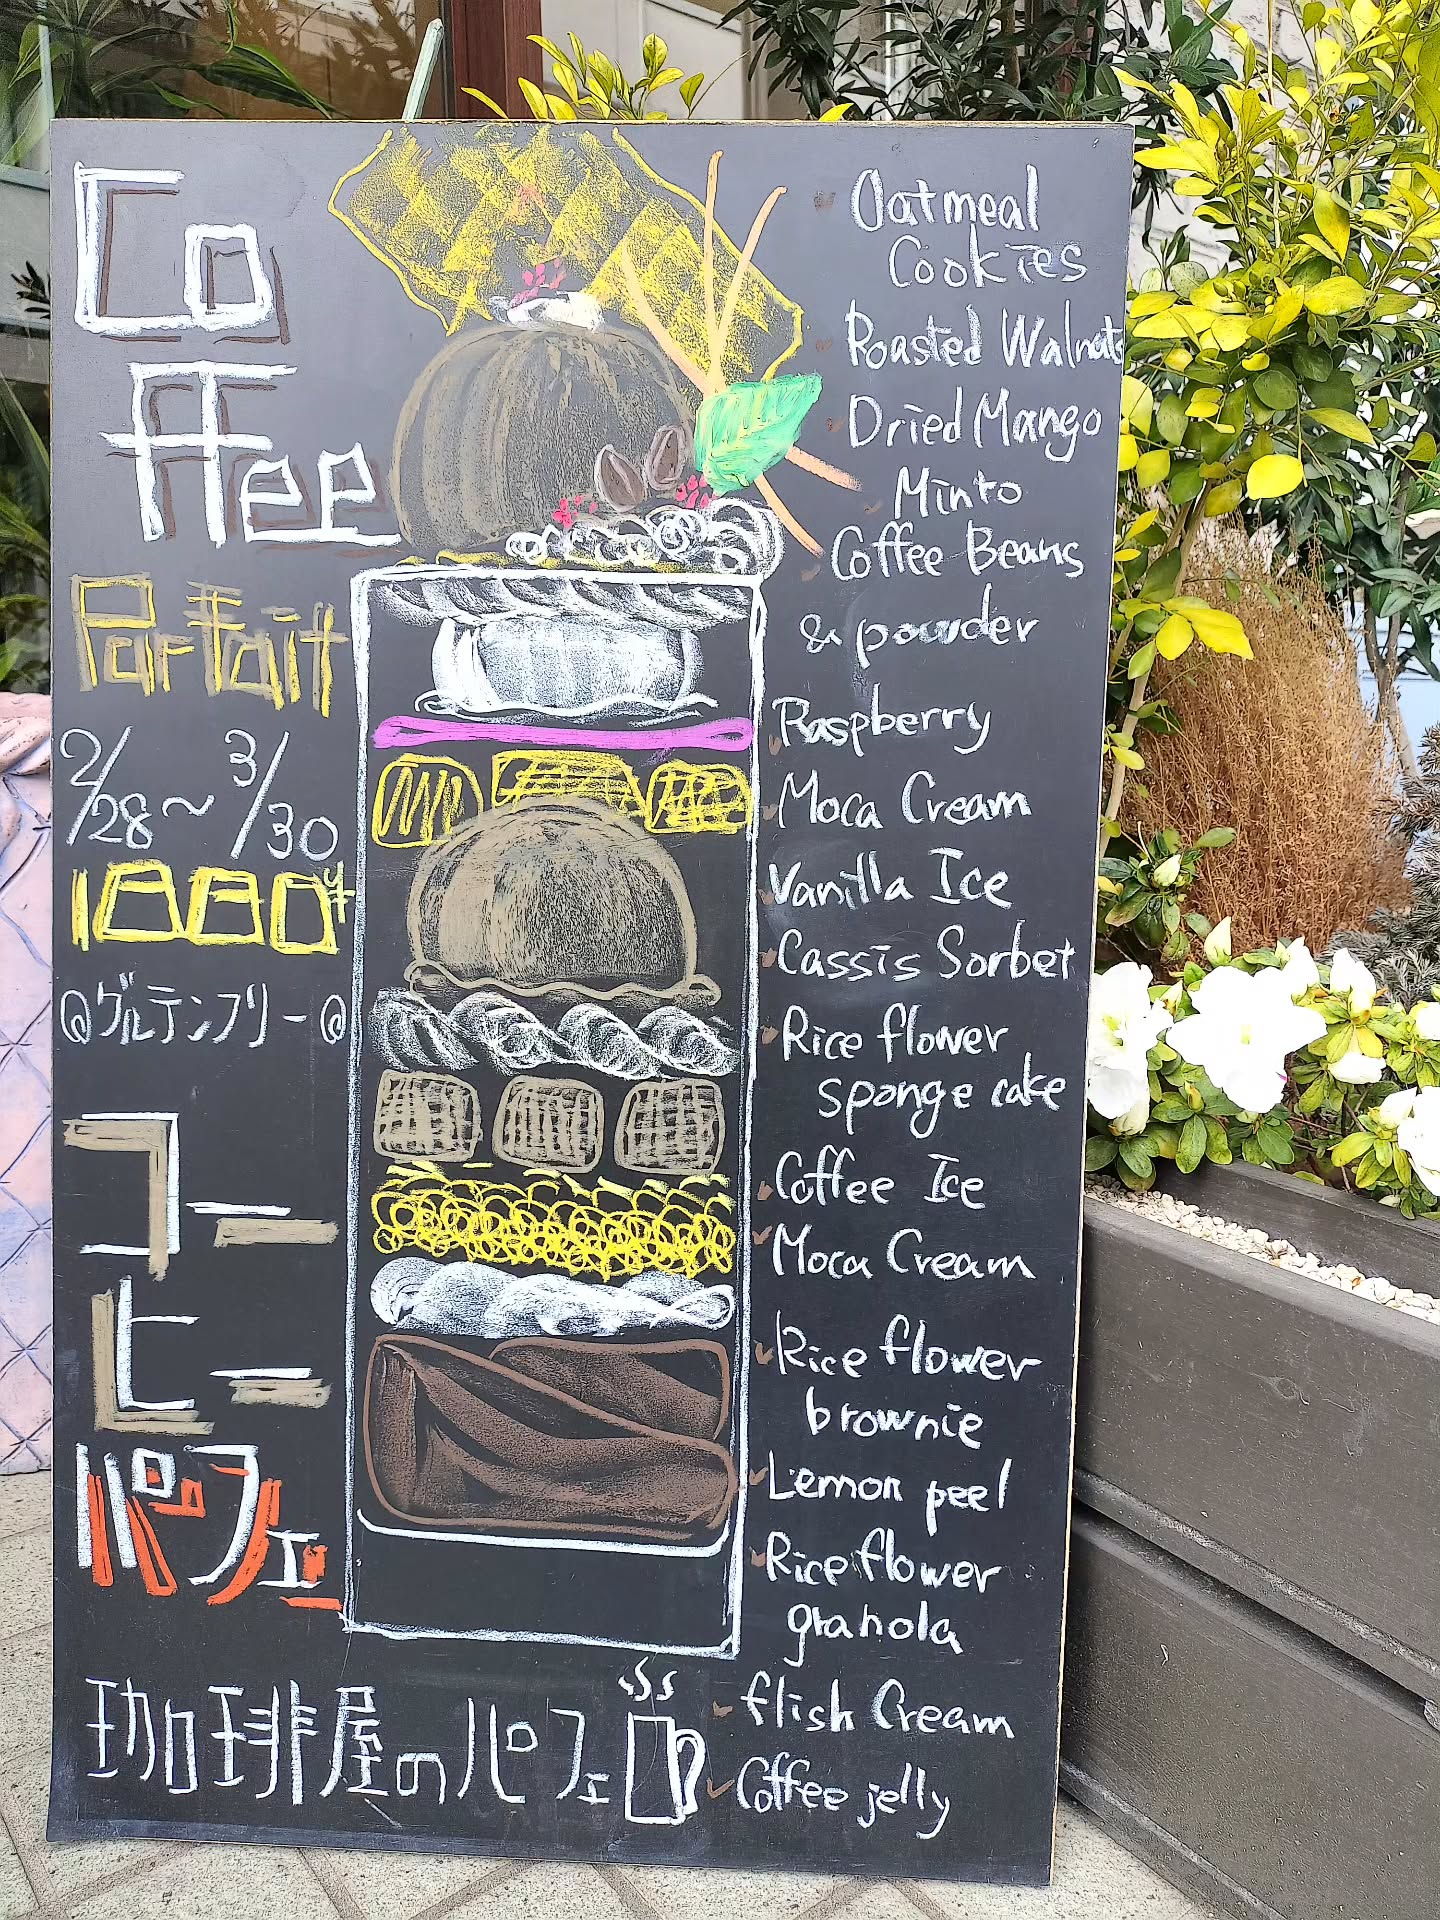 Co
ffee
Parfait
2/28〜3/30
1880
@グルテンフリー@
コー
ヒー
パフェ
珈琲屋のパフェ
Oatmeal
Cookies
Roasted Walnuts
Dried Mango
Minto
Coffee Beans
& powder
Raspberry
Moca Cream
Vanilla Ice
Cassis Sorbet
Rice flower
sponge cake
Coffee Ice
Moca Cream
Rice flower
brownie
Lemon peel
Rice flower
granola
flish Cream
Coffee jelly